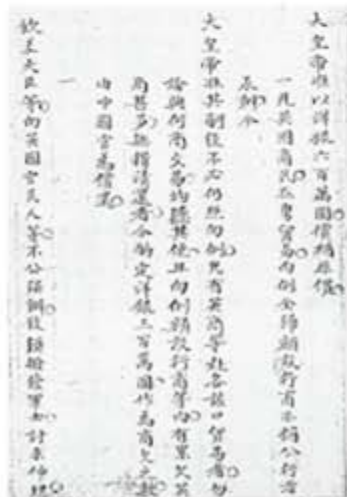 大皇帝准以洋銀六百萬圓償補原價
一凡英國商民在粵貿易向例全歸額設行商亦稱公行者
承辦今
大皇帝准其嗣後不必仍照向例凡有英商等赴各該口貿易者勿
論與何商交易均聽其便且向例額設行商等內有累欠英
商甚多無措清還者今酌定洋銀三百萬圓作為商欠之數
由中國官為償還
一
欽差大臣等向英國官民人等不公強辦致須撥發軍士討求伸理